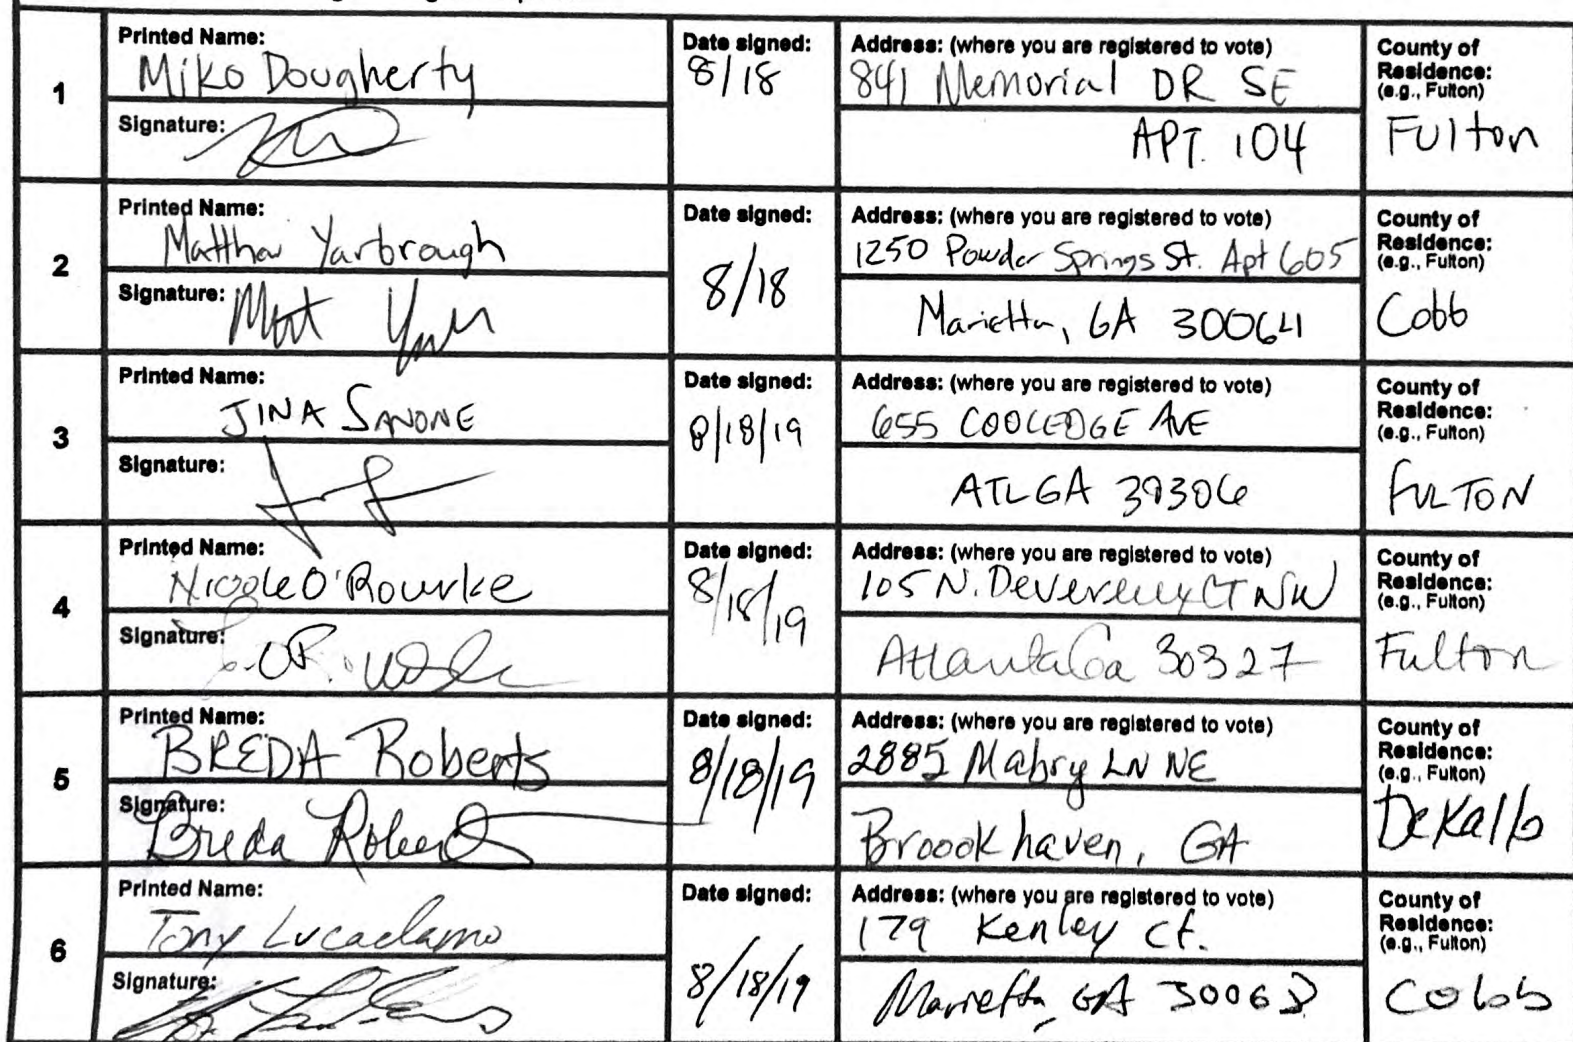 1
Printed Name:
Miko Dougherty
Signature:
Date signed:
8/18
Address: (where you are registered to vote)
841 Memorial DR SE
APT. 104
County of
Residence:
(e.g., Fulton)
Fulton
2
Printed Name:
Matthew Yarbrough
Signature:
Date signed:
8/18
Address: (where you are registered to vote)
1250 Powder Springs St. Apt 605
Marietta, GA 30064
County of
Residence:
(e.g., Fulton)
Cobb
3
Printed Name:
JINA SANONE
Signature:
Date signed:
8/18/19
Address: (where you are registered to vote)
655 COOLEDGE AVE
ATL GA 30306
County of
Residence:
(e.g., Fulton)
FULTON
4
Printed Name:
Nicole O'Rourke
Signature:
Date signed:
8/18/19
Address: (where you are registered to vote)
105 N. Devereux CT NW
Atlanta Ga 30327
County of
Residence:
(e.g., Fulton)
Fulton
5
Printed Name:
BREDA Roberts
Signature:
Breda Roberts
Date signed:
8/18/19
Address: (where you are registered to vote)
2885 Mabry LN NE
Broookhaven, GA
County of
Residence:
(e.g., Fulton)
DeKalb
6
Printed Name:
Tony Lucadamo
Signature:
Date signed:
8/18/19
Address: (where you are registered to vote)
179 Kenley Ct.
Marietta, GA
County of
Residence:
(e.g., Fulton)
Cobb